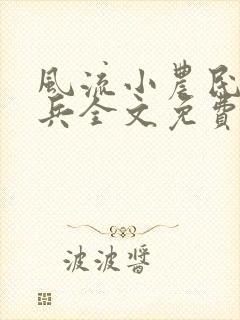 風流小農民
兵全文免費
波波醬